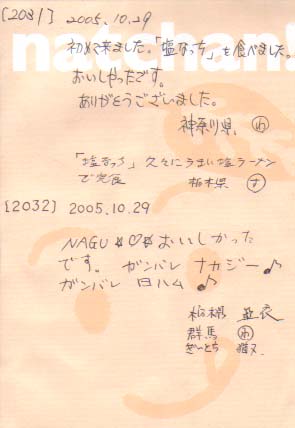 [2031] 2005.10.29
natchan!
初めて来ました。「塩なっち」を食べました。
おいしかったです。
ありがとうございました。
神奈川県
「塩なっち」久々にうまい塩ラーメン
で完食 栃木県
[2032] 2005.10.29
NAGU ♡ おいしかった
です。 ガンバレ ナカジー♪
ガンバレ 日ハム ♪
群馬